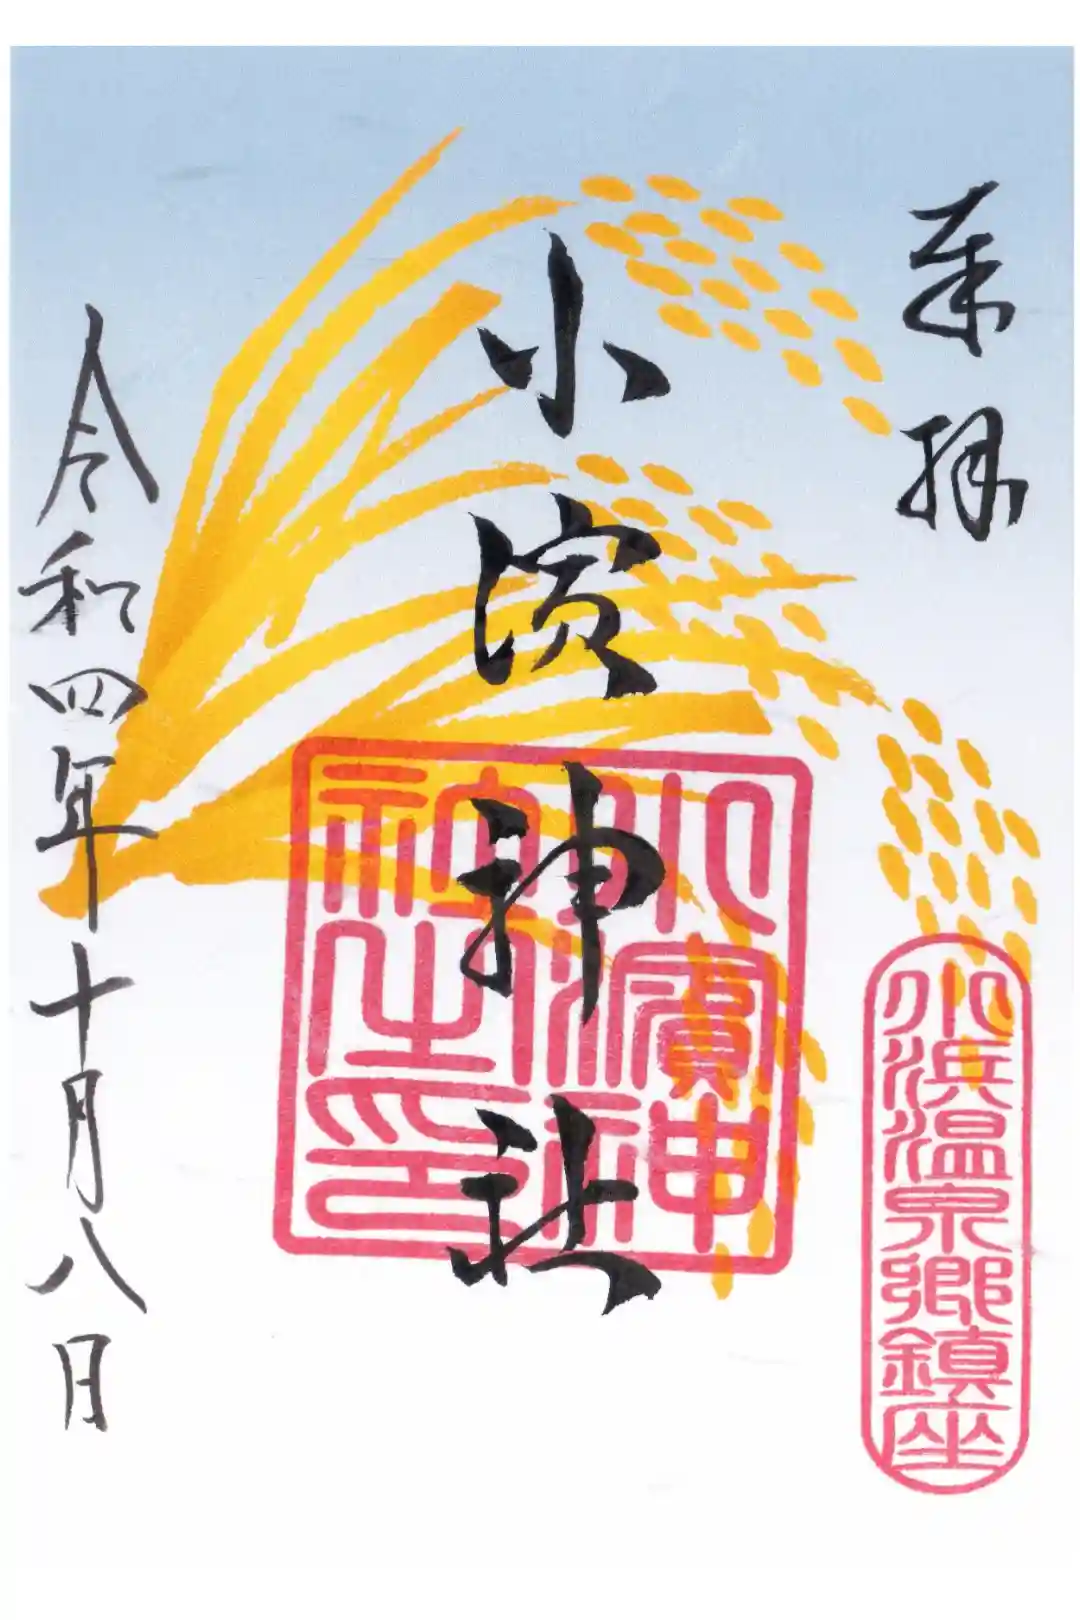 奉拝
小浜温泉郷鎮座
小濱神社
小濱神社之神印
令和四年十月八日